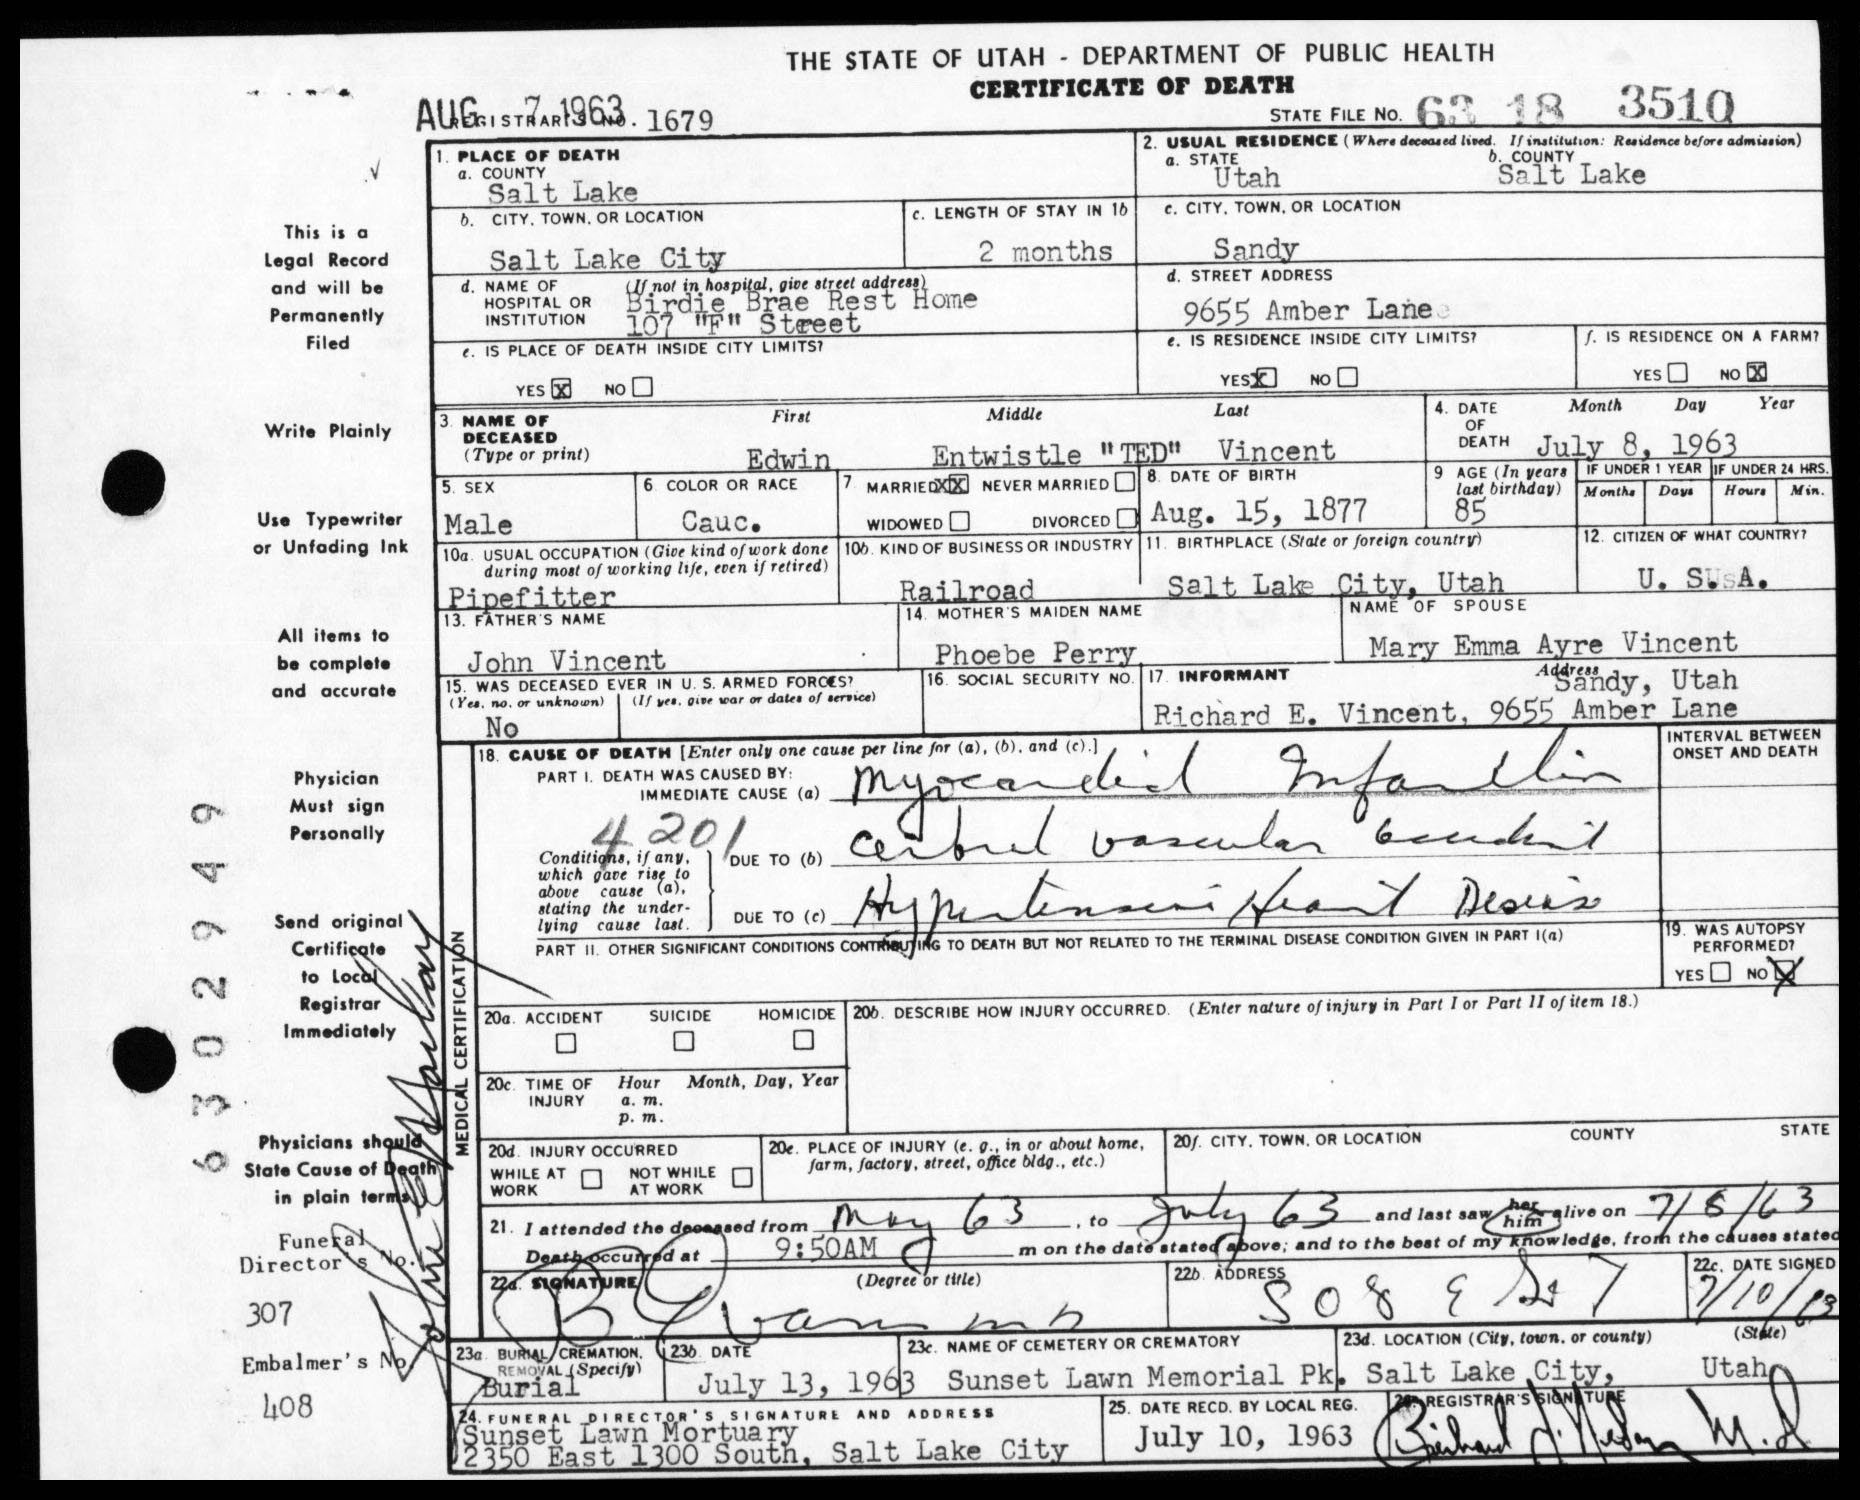 THE STATE OF UTAH - DEPARTMENT OF PUBLIC HEALTH
CERTIFICATE OF DEATH
AUG 7 1963
REGISTRAR'S NO. 1679
STATE FILE NO. 63 18 3510
1. PLACE OF DEATH
a. COUNTY
Salt Lake
2. USUAL RESIDENCE (Where deceased lived. If institution: Residence before admission)
a. STATE b. COUNTY
Utah Salt Lake
b. CITY, TOWN, OR LOCATION
Salt Lake City
c. LENGTH OF STAY IN 1b
2 months
c. CITY, TOWN, OR LOCATION
Sandy
d. NAME OF HOSPITAL OR INSTITUTION (If not in hospital, give street address)
Birdie Brae Rest Home
107 "F" Street
d. STREET ADDRESS
9655 Amber Lane
e. IS PLACE OF DEATH INSIDE CITY LIMITS?
YES X NO
e. IS RESIDENCE INSIDE CITY LIMITS?
YES X NO
f. IS RESIDENCE ON A FARM?
YES NO X
3. NAME OF DECEASED (Type or print)
First Middle Last
Edwin Entwistle "TED" Vincent
4. DATE OF DEATH Month Day Year
July 8, 1963
5. SEX
Male
6. COLOR OR RACE
Cauc.
7. MARRIED XX NEVER MARRIED
WIDOWED DIVORCED
8. DATE OF BIRTH
Aug. 15, 1877
9 AGE (In years last birthday)
85
IF UNDER 1 YEAR IF UNDER 24 HRS.
Months Days Hours Min.
10a. USUAL OCCUPATION (Give kind of work done during most of working life, even if retired)
Pipefitter
10b. KIND OF BUSINESS OR INDUSTRY
Railroad
11. BIRTHPLACE (State or foreign country)
Salt Lake City, Utah
12. CITIZEN OF WHAT COUNTRY?
U. S. A.
13. FATHER'S NAME
John Vincent
14. MOTHER'S MAIDEN NAME
Phoebe Perry
NAME OF SPOUSE
Mary Emma Ayre Vincent
15. WAS DECEASED EVER IN U. S. ARMED FORCES?
(Yes, no, or unknown) (If yes, give war or dates of service)
No
16. SOCIAL SECURITY NO.
17. INFORMANT Address
Sandy, Utah
Richard E. Vincent, 9655 Amber Lane
MEDICAL CERTIFICATION
18. CAUSE OF DEATH [Enter only one cause per line for (a), (b), and (c).]
INTERVAL BETWEEN ONSET AND DEATH
PART I. DEATH WAS CAUSED BY:
IMMEDIATE CAUSE (a) Myocardial Infarction
4201
Conditions, if any, which gave rise to above cause (a), stating the underlying cause last.
DUE TO (b) Cerebral vascular accident
DUE TO (c) Hypertensive Heart Disease
PART II. OTHER SIGNIFICANT CONDITIONS CONTRIBUTING TO DEATH BUT NOT RELATED TO THE TERMINAL DISEASE CONDITION GIVEN IN PART I(a)
19. WAS AUTOPSY PERFORMED?
YES NO X
20a. ACCIDENT SUICIDE HOMICIDE
20b. DESCRIBE HOW INJURY OCCURRED. (Enter nature of injury in Part I or Part II of item 18.)
20c. TIME OF INJURY Hour Month, Day, Year
a. m.
p. m.
20d. INJURY OCCURRED
WHILE AT WORK NOT WHILE AT WORK
20e. PLACE OF INJURY (e. g., in or about home, farm, factory, street, office bldg., etc.)
20f. CITY, TOWN, OR LOCATION COUNTY STATE
21. I attended the deceased from May 63, to July 63 and last saw her him alive on 7/8/63
Death occurred at 9:50AM m on the date stated above; and to the best of my knowledge, from the causes stated
22a. SIGNATURE (Degree or title)
22b. ADDRESS
22c. DATE SIGNED
7/10/63
23a. BURIAL, CREMATION, REMOVAL (Specify)
Burial
23b. DATE
July 13, 1963
23c. NAME OF CEMETERY OR CREMATORY
Sunset Lawn Memorial Pk.
23d. LOCATION (City, town, or county) (State)
Salt Lake City, Utah
24. FUNERAL DIRECTOR'S SIGNATURE AND ADDRESS
Sunset Lawn Mortuary
2350 East 1300 South, Salt Lake City
25. DATE RECD. BY LOCAL REG.
July 10, 1963
26. REGISTRAR'S SIGNATURE
This is a
Legal Record
and will be
Permanently
Filed
Write Plainly
Use Typewriter
or Unfading Ink
All items to
be complete
and accurate
Physician
Must sign
Personally
Send original
Certificate
to Local
Registrar
Immediately
Physicians should
State Cause of Death
in plain terms
Funeral
Director's No.
307
Embalmer's No.
408
6302949